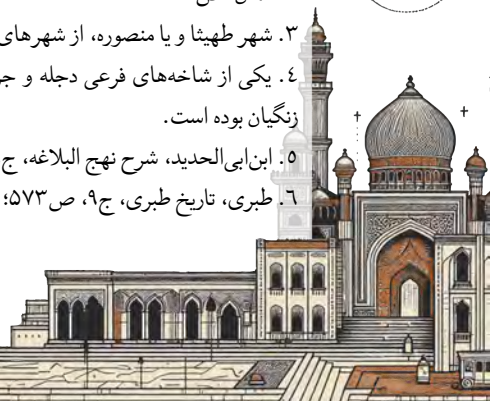 ۳. شهر طهیثا و یا منصوره، از شهرهای
٤. یکی از شاخه‌های فرعی دجله و
زنگیان بوده است.
٥. ابن‌ابی‌الحدید، شرح نهج البلاغه، ج
٦. طبری، تاریخ طبری، ج۹، ص۵۷۳؛